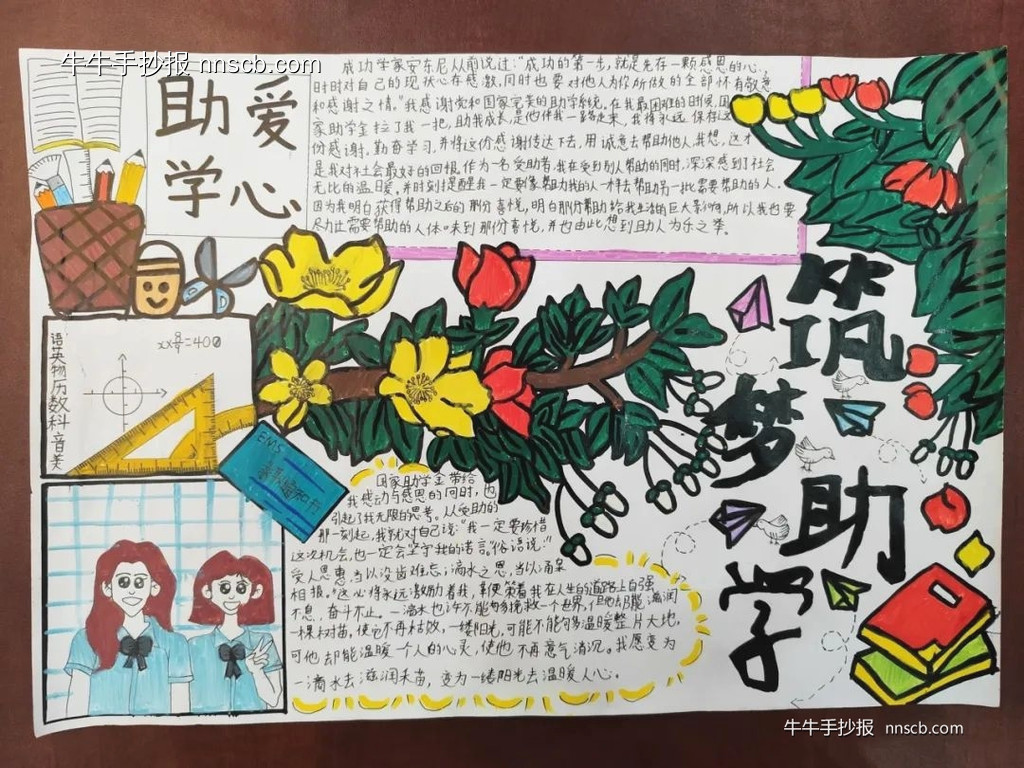 牛牛手抄报 nnscb.com
爱心
助学
成功学家安东尼从前说过:"成功的第一步,就是先存一颗感恩的心,
时时对自己的现状心存感激,同时也要对他人为你所做的全部怀有敬意
和感谢之情。"我感谢党和国家完美的助学系统,在我最困难的时候,国
家助学金拉了我一把,助我成长,是他伴我一路走来,我得永远保存这
份感谢,勤奋学习,并将这份感谢传达下去,用诚意去帮助他人,我想,这才
是我对社会最好的回报。作为一名受助者,我在受到别人帮助的同时,深深感到了社会
无比的温暖,并时刻提醒我一定要像帮助我的人一样去帮助另一批需要帮助的人。
因为我明白获得帮助之后的那份喜悦,明白那份帮助给我生活的巨大影响,所以我也要
尽力让需要帮助的人体味到那份喜悦,并也由此想到助人为乐之举。
筑梦助学
语英物历数科音美
=400
EMS
录取通知书
国家助学金带给
我感动与感恩的同时,也
引起了我无限的思考。从受助的
那一刻起,我就对自己说:"我一定要珍惜
这次机会,也一定会坚守我的诺言。"俗语说:"
受人恩惠,当以没齿难忘;滴水之恩,当以涌泉
相报。"这必将永远激励着我,鞭策着我在人生的道路上自强
不息,奋斗不止。一滴水也许不能够挽救一个世界,但他却能滋润
一棵树苗,使它不再枯败,一缕阳光,可能不能够温暖整片大地,
可他却能温暖一个人的心灵,使他不再意气消沉。我愿变为
一滴水去滋润禾苗,变为一缕阳光去温暖人心。
牛牛手抄报 nnscb.com